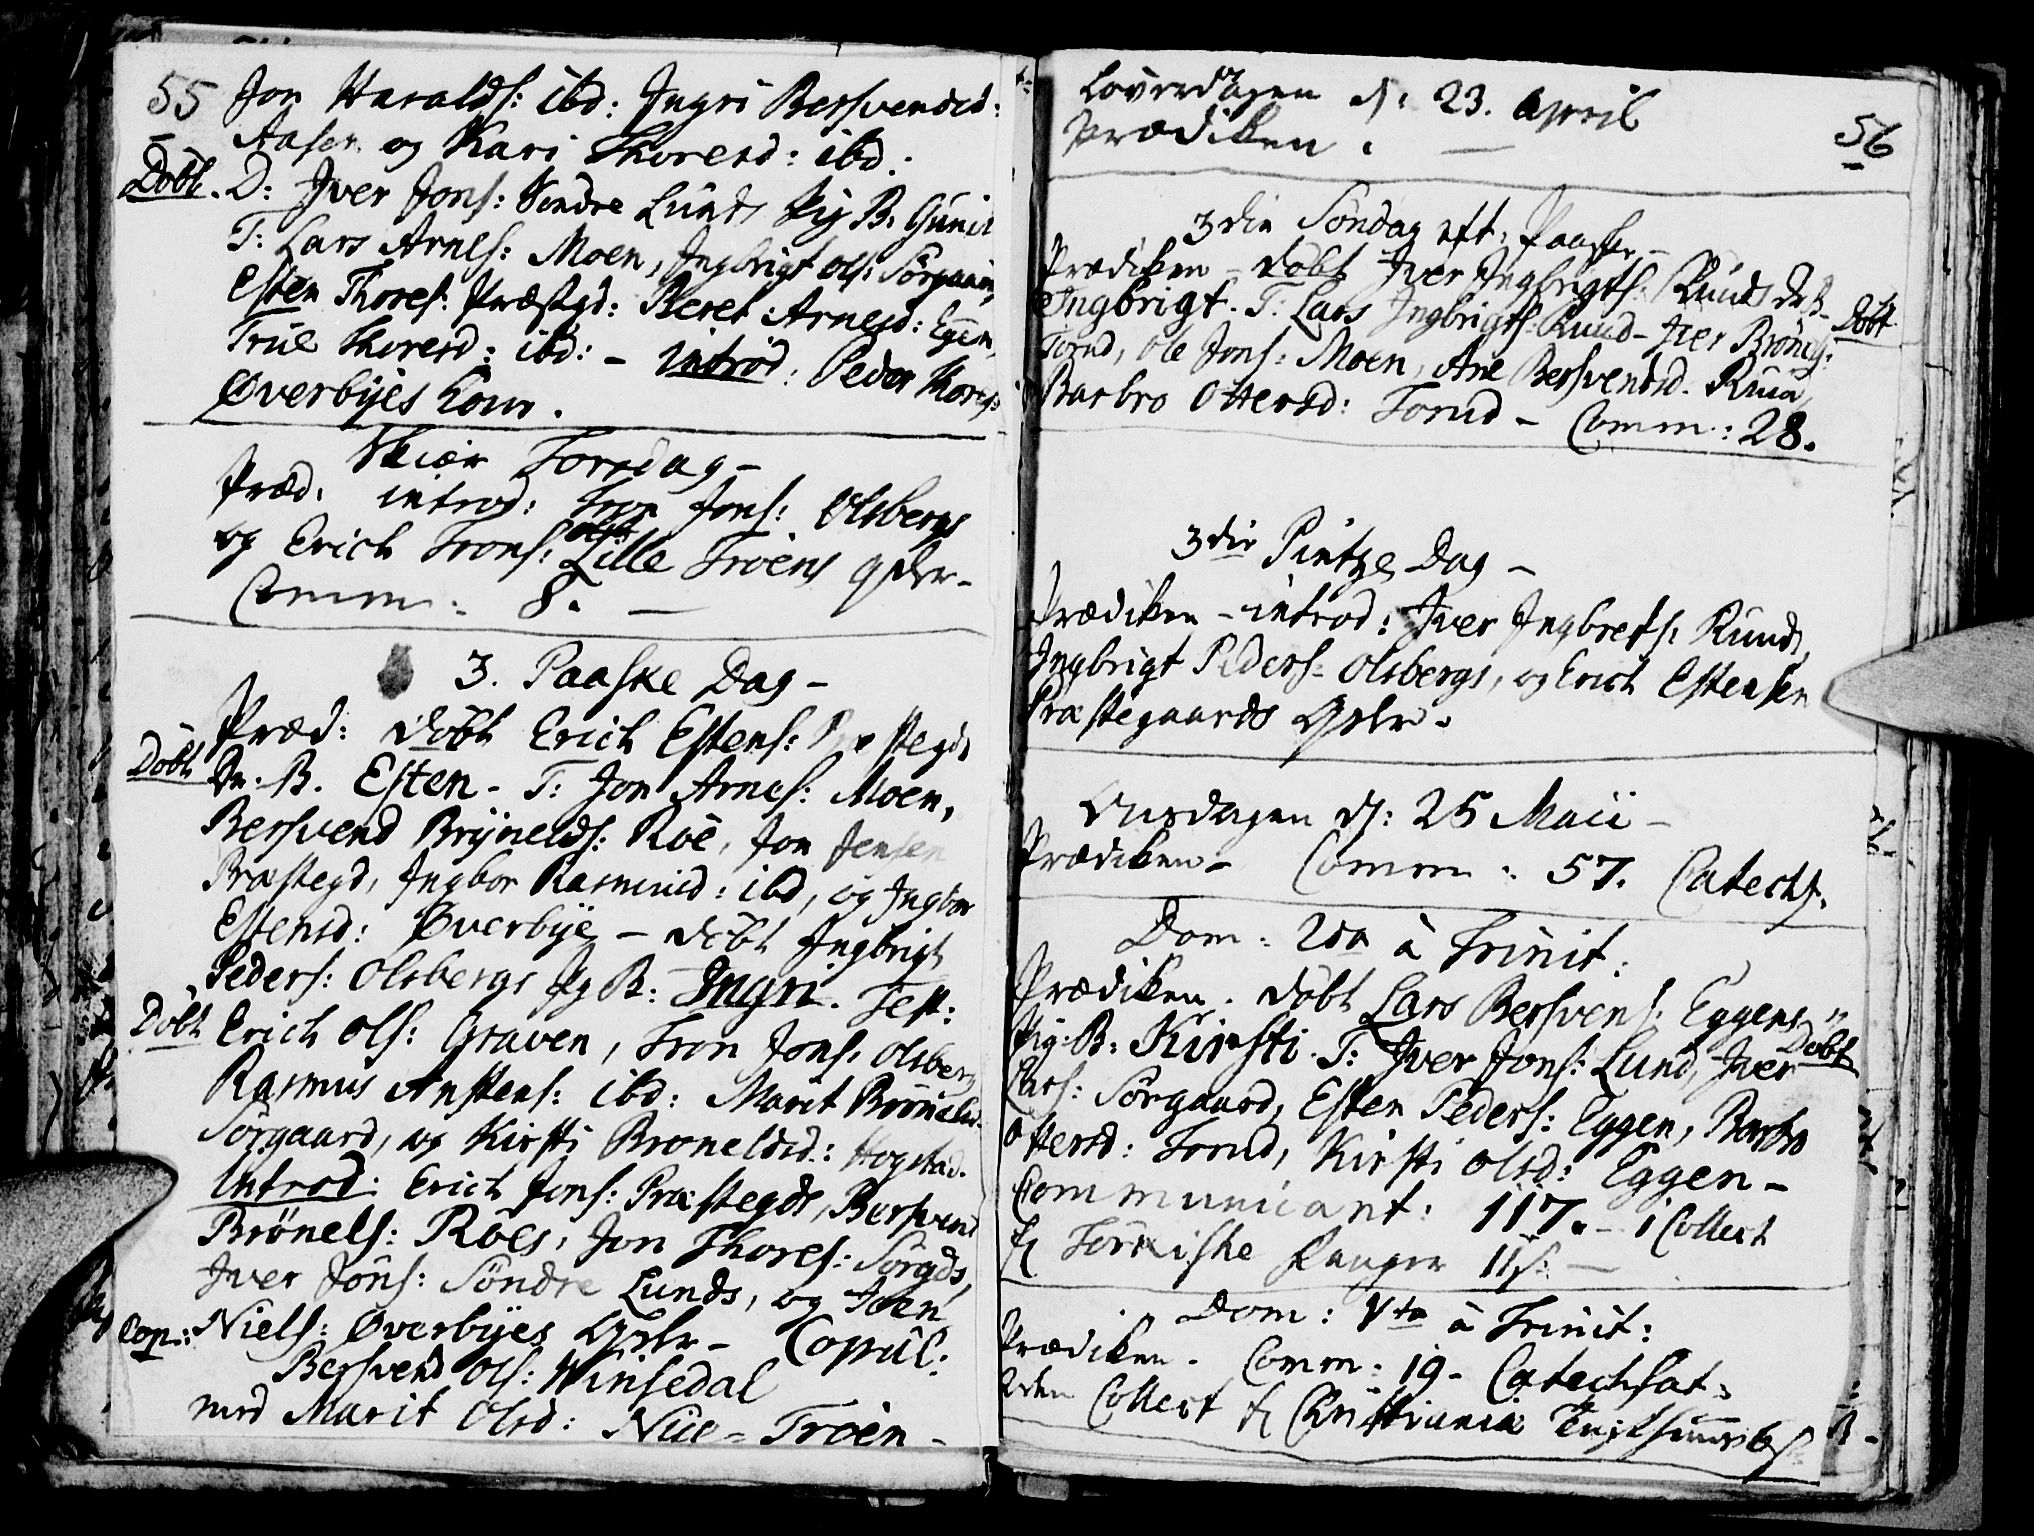 55
Jon Haralds: ibd: Ingri Bersvendsd:
Aasen og Kari Thoresd: ibd.
Døbt. D: Iver Jons: Søndre Lunds Pig B. Gunil
T: Lars Arnes: Moen, Ingbrigt Ols: Sørgaard,
Esten Thores: Præstgd: Beret Arnesd: Eggen,
True Thoresd: ibd: – Introd: Peder Thores:
Øverbyes Kone.
Skiær Torsdag –
Præd: introd: Tron Jons: Olsbergs
og Erich Trons: Lille Trøens qder –
Comm: 8. —
3. Paaske Dag –
Præd: døbt Erich Estens: Præstegds
Døbt Dr. B. Esten – T: Jon Arnes: Moen,
Bersvend Brynelds: Roe, Jon Jensen
Præstegd, Ingbor Rasmusd: ibd, og Ingbor
Estensd: Øverbye – døbt Ingbrigt
Peders: Olsbergs Pg B: Ingri. Test:
Døbt Erich Ols: Graven, Tron Jons: Olsberg
Rasmus Anstens: ibd: Marit Brønelsd:
Sørgaard, og Kirsti Broneldsd: Hogstad.
Introd: Erich Jons: Præstegds, Bersvend
Brönels: Röes, Jon Thores: Sörgds,
Iver Jons: Söndre Lunds, og Iven
Cop: Niels: Øverbyes Qder – Copul:
Bersvend Ols: Winsedal
med Marit Olsd: Nye-Trøen –
56
Løverdagen d: 23. April
Prædiken. —
3die Søndag eft: Paaske –
Prædiken – døbt Iver Ingbrigts: Ruuds Dr B.
Døbt
Ingbrigt. T: Lars Ingbrigts: Ruud – Iver Brönels:
Torud, Ole Jons: Moen, Ane Bersvendsd. Ruud,
Barbro Ottersd: Torud – Comm: 28.
3die Pintze Dag –
Prædiken – introd: Iver Ingbrets: Ruuds,
Ingbrigt Peders: Olsbergs, og Erich Estensen
Præstegaards Qder.
Onsdagen d: 25 Maii –
Prædiken – Comm: 57. Catechs.
Dom: 2da à Trinit:
Prædiken. døbt Lars Bersvens: Eggens
Døbt
Pig: B: Kirsti. T: Iver Jons: Lund, Iver
Lars: Sörgaard, Esten Peders: Eggen, Barbro
Ottersd: Torud, Kirsti Olsd: Eggen –
Communicant: 117. – i Collect
f Törkiske Fanger 11 s: —
Dom: Vta à Trinit:
Prædiken – Comm: 19 – Catechsat:
2den Collect f Christiania